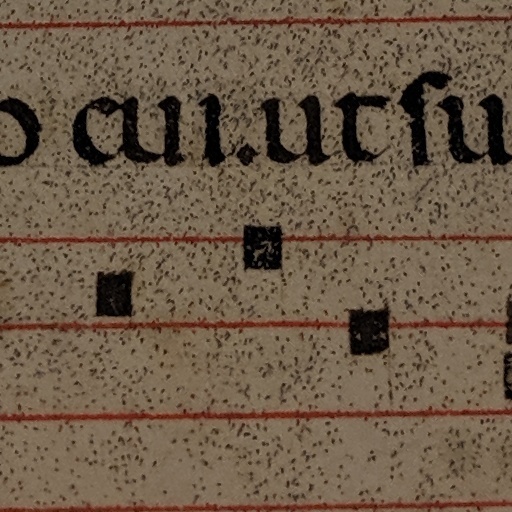 o cui. ut su